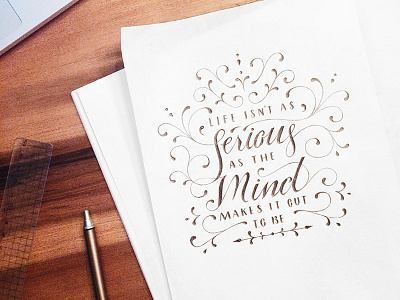 LIFE ISN'T AS
Serious
AS THE
Mind
MAKES IT OUT
TO BE